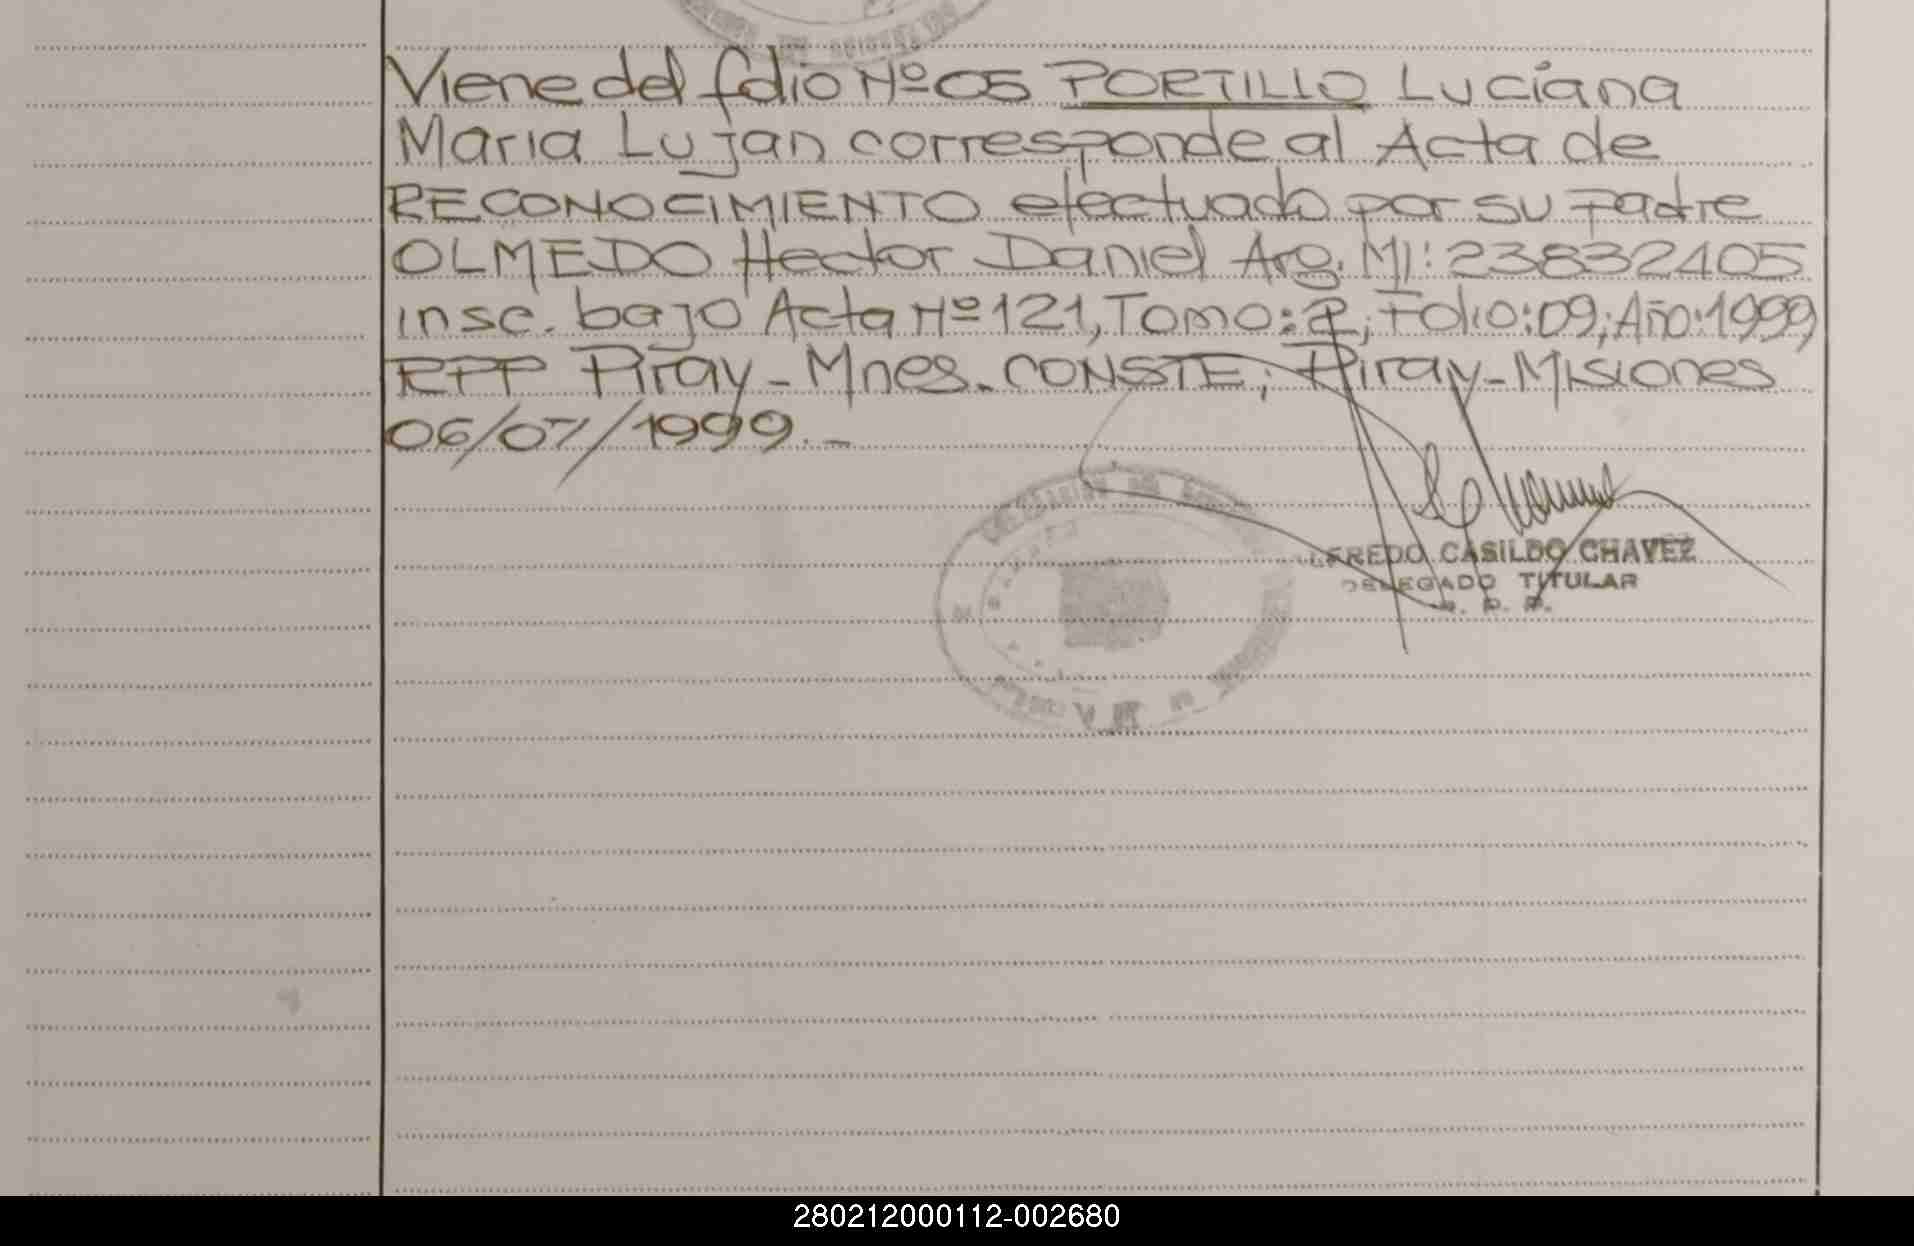 Viene del folio Nº 05 PORTILLO Luciana
Maria Lujan corresponde al Acta de
RECONOCIMIENTO efectuado por su Padre
OLMEDO Hector Daniel Arg. MI: 23832405
insc. bajo Acta Nº 121, Tomo: 2, Folio: 09; Año: 1999,
RPP Piray - Mnes. CONSTE; Piray - Misiones
06/07/1999.-
LFREDO CASILDO CHAVEZ
DELEGADO TITULAR
280212000112-002680